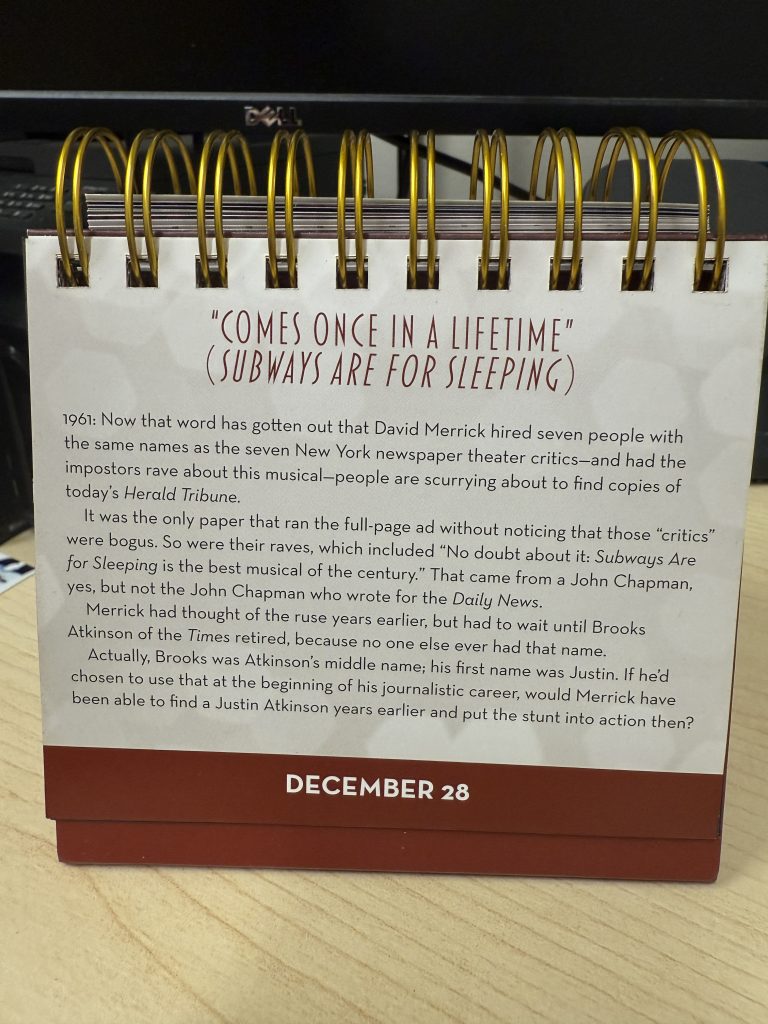 DELL
"COMES ONCE IN A LIFETIME"
(SUBWAYS ARE FOR SLEEPING)
1961: Now that word has gotten out that David Merrick hired seven people with
the same names as the seven New York newspaper theater critics—and had the
impostors rave about this musical—people are scurrying about to find copies of
today's Herald Tribune.
It was the only paper that ran the full-page ad without noticing that those "critics"
were bogus. So were their raves, which included "No doubt about it: Subways Are
for Sleeping is the best musical of the century." That came from a John Chapman,
yes, but not the John Chapman who wrote for the Daily News.
Merrick had thought of the ruse years earlier, but had to wait until Brooks
Atkinson of the Times retired, because no one else ever had that name.
Actually, Brooks was Atkinson's middle name; his first name was Justin. If he'd
chosen to use that at the beginning of his journalistic career, would Merrick have
been able to find a Justin Atkinson years earlier and put the stunt into action then?
DECEMBER 28